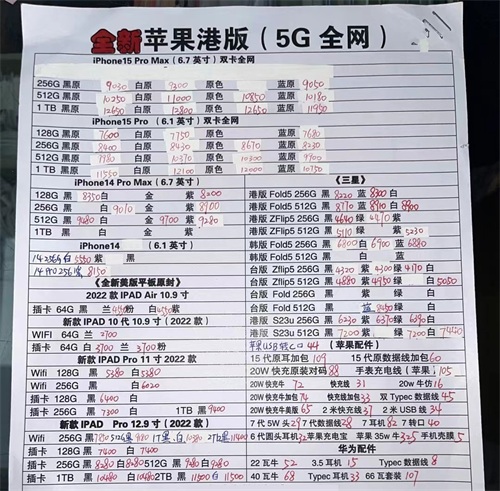 全新苹果港版（5G 全网）
iPhone15 Pro Max（6.7 英寸）双卡全网
256G 黑原 9030 白原 9200 原色 蓝原 9050
512G 黑原 10250 白原 11000 原色 10850 蓝原 10180
1 TB 黑原 12650 白原 12800 原色 12650 蓝原 11950
iPhone15 Pro （6.1 英寸）双卡全网
128G 黑原 7600 白原 7750 原色 蓝原 7680
256G 黑原 8400 白原 8430 原色 8670 蓝原 8230
512G 黑原 9980 白原 10370 原色 10300 蓝原 9900
1 TB 黑原 11550 白原 12100 原色 12000 蓝原 10750
iPhone14 Pro Max（6.7 英寸）
128G 黑 8350 白 金 紫 8200
256G 黑 白 9070 金 紫 8900
512G 黑 9280 白 金 9700 紫 9280
1TB 黑 白 金 紫
iPhone14 （6.1 英寸）
14 256G 白 紫 黑
14 Pro 256 8150
《全新美版平板原封》
2022 款 IPAD Air 10.9 寸
插卡 64G 黑 兰 粉 紫
新款 IPAD 10 代 10.9 寸（2022 款）
WIFI 64G 兰 2700
插卡 64G 白 3700 兰 3700 粉
新款 IPAD Pro 11 寸 2022 款
Wifi 128G 黑 5380 白 5380
Wifi 256G 黑 白 6020
插卡 128G 黑 6400 白
插卡 256G 黑 7300 白 1TB 黑 9400
新款 IPAD Pro 12.9 寸（2022 款）
Wifi 256 黑 512G 黑 1T 黑 白 10380 2TB 黑 11400
插卡 128G 黑 7400 白 7400
插卡 256G 黑 8280 白 8280 512G 黑 9280 白 9180
插卡 1TB 黑 10480 白 10480 2TB 黑 11500 白 11500
《三星》
港版 Fold5 256G 黑 8220 蓝 8300 白
港版 Fold5 512G 黑 8770 蓝 8910 白 8900
港版 ZFlip5 256G 黑 4640 绿 4470 紫
港版 ZFlip5 512G 黑 5110 绿 紫 5230
韩版 Fold5 256G 黑 6800 白 6900 蓝 6880
韩版 Fold5 512G 黑 白 蓝
台版 Zflip5 256G 黑 4320 紫 4300 绿 4170 白
台版 Zflip5 512G 黑 4880 紫 4950 绿 白 5050
台版 Fold 256G 黑 蓝 白
台版 Fold 512G 黑 蓝 8450 白
港版 S23u 256G 黑 6230 绿 6370 白 6390
港版 S23u 512G 黑 7200 绿 7200 白 7420
苹果USB转C口 44 （苹果配件）
15 代原耳加包 109 15 代原数据线加包 60
20W 快充原装对码 88 手表充电线（黑原） 105
20W 快充牛 72 快充线 31 20w 牛仿 16
20W 快充牛加包 74 快充线加包 33 双 Typec 数据线 45
20W 快充牛美版 65 2 米快充线 37 2 米 USB 线 34
7 代 5W 头 29 7 代数据线 28 7 耳机 82 7 转口 40
6 代圆头耳机 32 苹果充电宝 苹果 35w 牛 325 手机壳膜 5
华为配件
22 瓦牛 52 3.5 耳机 15 Typec 数据线 8
40 瓦牛 68 Typec 耳机 33 66 瓦套装 107